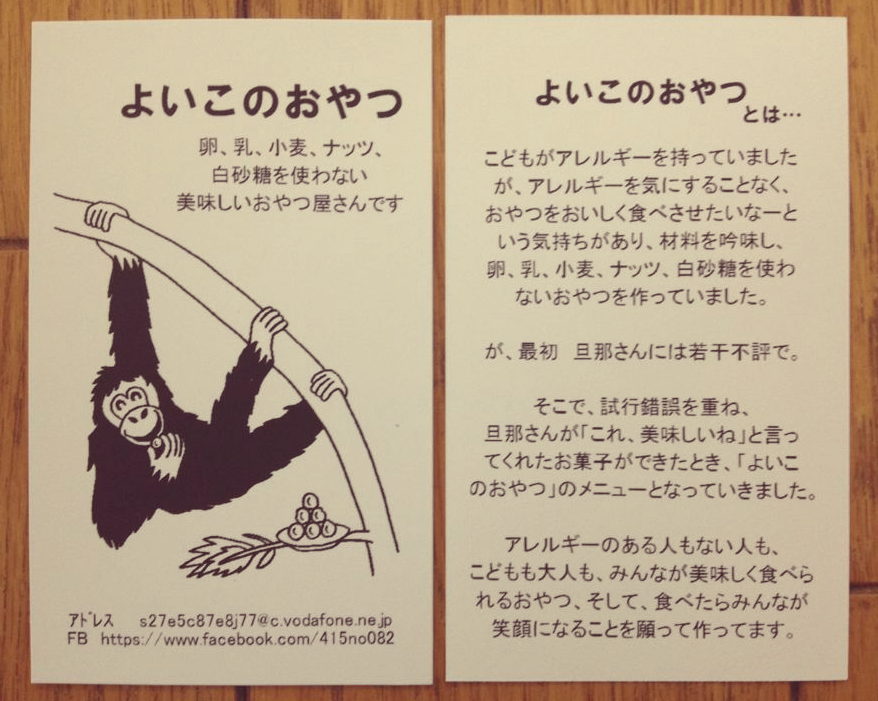 よいこのおやつ
卵、乳、小麦、ナッツ、
白砂糖を使わない
美味しいおやつ屋さんです
アドレス s27e5c87e8j77@c.vodafone.ne.jp
FB https://www.facebook.com/415no082
よいこのおやつ
とは…
こどもがアレルギーを持っていました
が、アレルギーを気にすることなく、
おやつをおいしく食べさせたいなーと
いう気持ちがあり、材料を吟味し、
卵、乳、小麦、ナッツ、白砂糖を使わ
ないおやつを作っていました。
が、最初 旦那さんには若干不評で。
そこで、試行錯誤を重ね、
旦那さんが「これ、美味しいね」と言っ
てくれたお菓子ができたとき、「よいこ
のおやつ」のメニューとなっていきました。
アレルギーのある人もない人も、
こどもも大人も、みんなが美味しく食べら
れるおやつ、そして、食べたらみんなが
笑顔になることを願って作ってます。